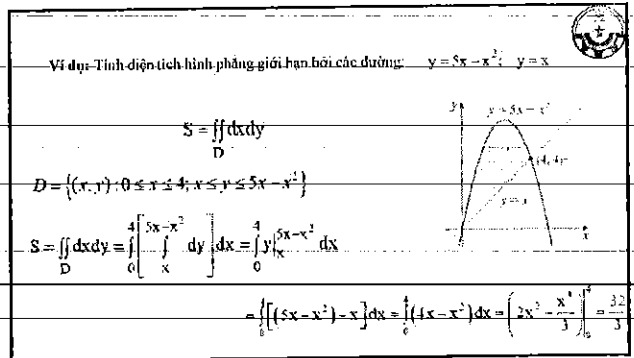 Ví dụ: Tính diện tích hình phẳng giới hạn bởi các đường: y = 5x − x²; y = x
S = ∬_D dxdy
y
y = 5x − x²
(4, 4)
D = {(x, y) : 0 ≤ x ≤ 4; x ≤ y ≤ 5x − x²}
y = x
x
S = ∬_D dxdy = ∫_0^4 [∫_x^{5x−x²} dy] dx = ∫_0^4 y|_x^{5x−x²} dx
= ∫_0^4 [(5x − x²) − x] dx = ∫_0^4 (4x − x²) dx = (2x² − x³/3)|_0^4 = 32/3